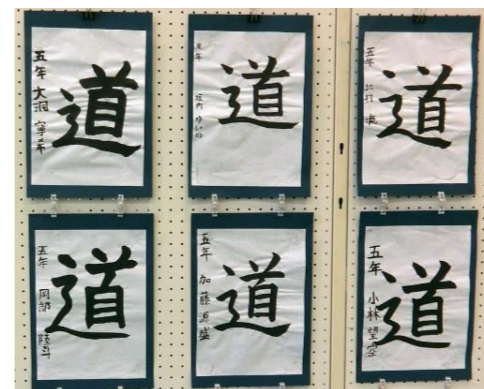 道
五年 大沢 寧希
道
五年 ゆいの
道
五年
道
五年 岡部 陸斗
道
五年 加藤 源盛
道
五年 小林 望空